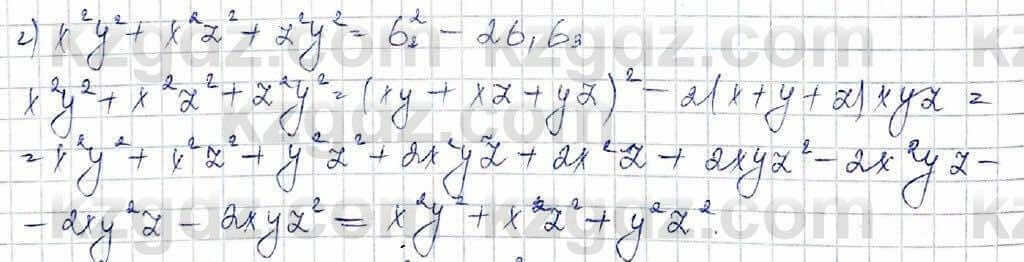 2) x²y² + x²z² + z²y² = б₂² - 2б₁б₃
x²y² + x²z² + z²y² = (xy + xz + yz)² - 2(x+y+z)xyz =
= x²y² + x²z² + y²z² + 2x²yz + 2x²z + 2xyz² - 2x²yz -
- 2xy²z - 2xyz² = x²y² + x²z² + y²z².
kzgdz.com